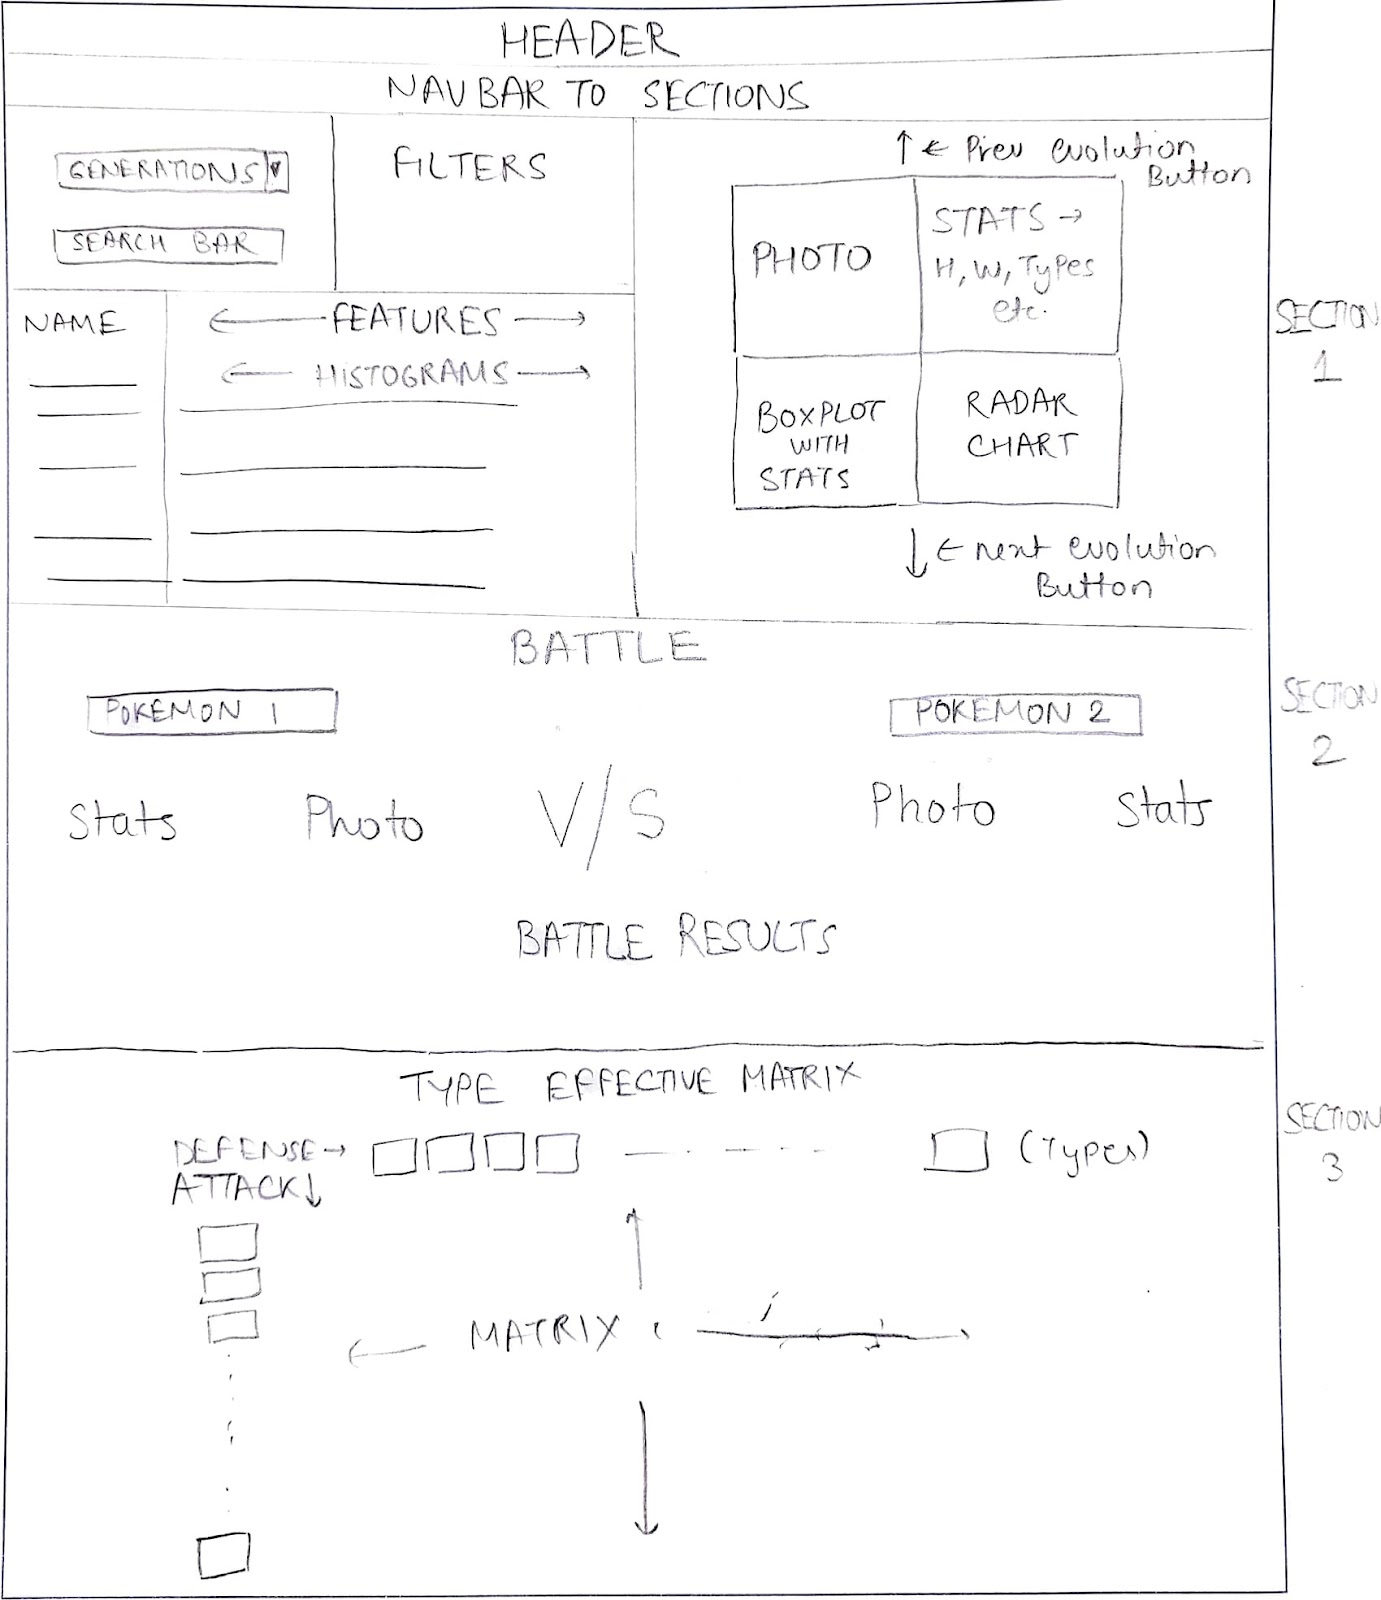 HEADER
NAVBAR TO SECTIONS
GENERATIONS
SEARCH BAR
FILTERS
↑ ← Prev evolution
Button
PHOTO
STATS →
H, W, Types
etc.
BOXPLOT
WITH
STATS
RADAR
CHART
↓ ← next evolution
Button
NAME
← FEATURES →
← HISTOGRAMS →
SECTION
1
BATTLE
POKEMON 1
POKEMON 2
Stats Photo V/S Photo Stats
BATTLE RESULTS
SECTION
2
TYPE EFFECTIVE MATRIX
DEFENSE →
ATTACK ↓
(Types)
MATRIX
SECTION
3